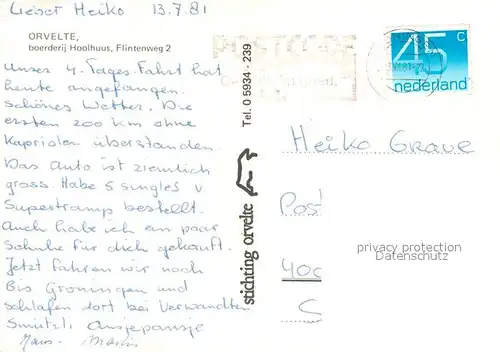 Lieber Heiko 13.7.81
ORVELTE,
boerderij Hoolhuus, Flintenweg 2
Unser 4. Tages Fahrt hat
heute angefangen.
Schönes Wetter. Die
ersten 200 km ohne
Kapriolen überstanden.
Das Auto ist ziemlich
gross. Habe 5 singles v
Supertramp bestellt.
Auch habe ich en paar
Sahnke für dich gekauft.
Jetzt fahren wir noch
bis Groningen und
schlafen dort bei Verwandten
Hans - Martin
stichting orvelte
Tel. 0 5934 - 239
POSTCODE
45 c
nederland
Heiko Graue
Post
400
privacy protection
Datenschutz
C